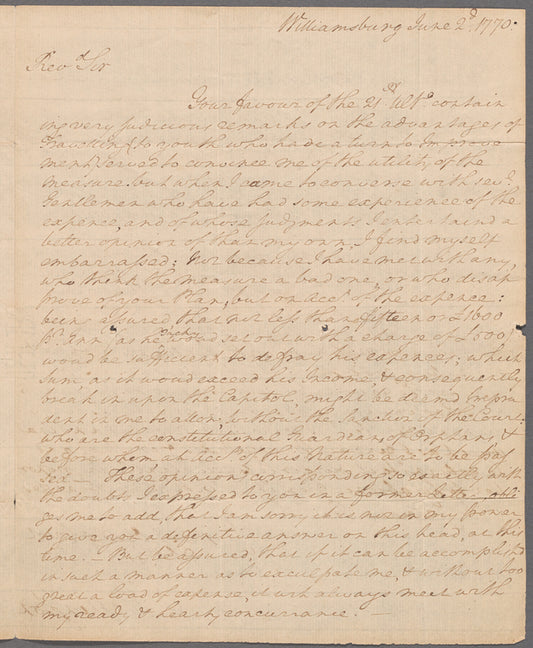 Williamsburg June 2d. 1770.
Revd. Sir
Your favour of the 21st Ulto. contain
ing very judicious remarks on the advantages of
Travelling (to youth who have a turn to Improve
ment) served to convince me of the utility of the
measure, but when I came to converse with sevl.
Gentlemen who have had some experience of the
expence, and of whose judgments I entertaind a
better opinion of than my own, I find myself
embarrassed; Not because I have met with any,
who think the measure a bad one, or who disap
prove of your Plan, but on acct. of the expence:
being assured that not less than fifteen or £1600
pr. Ann (as he woud set out with a charge of £500)
woud be sufficient to defray his expences; which
sum as it woud exceed his Income, & consequently
break in upon the Capitol, might be deemd impru
dent in me to allow, without the sanction of the Court:
who are the constitutional Guardians of Orphans, &
before whom all accts. of this Nature are to be pas
sed— These opinions corrisponding so exactly with
the doubts I expressed to you in a former Letter obli
ges me to add, that I am sorry it is not in my power
to give you a definitive answer on this head, at this
time. — But be assured, that if it can be accomplishd
in such a manner as to exculpate me, & without too
great a load of expense, it will always meet with
my ready & hearty concurrance. —